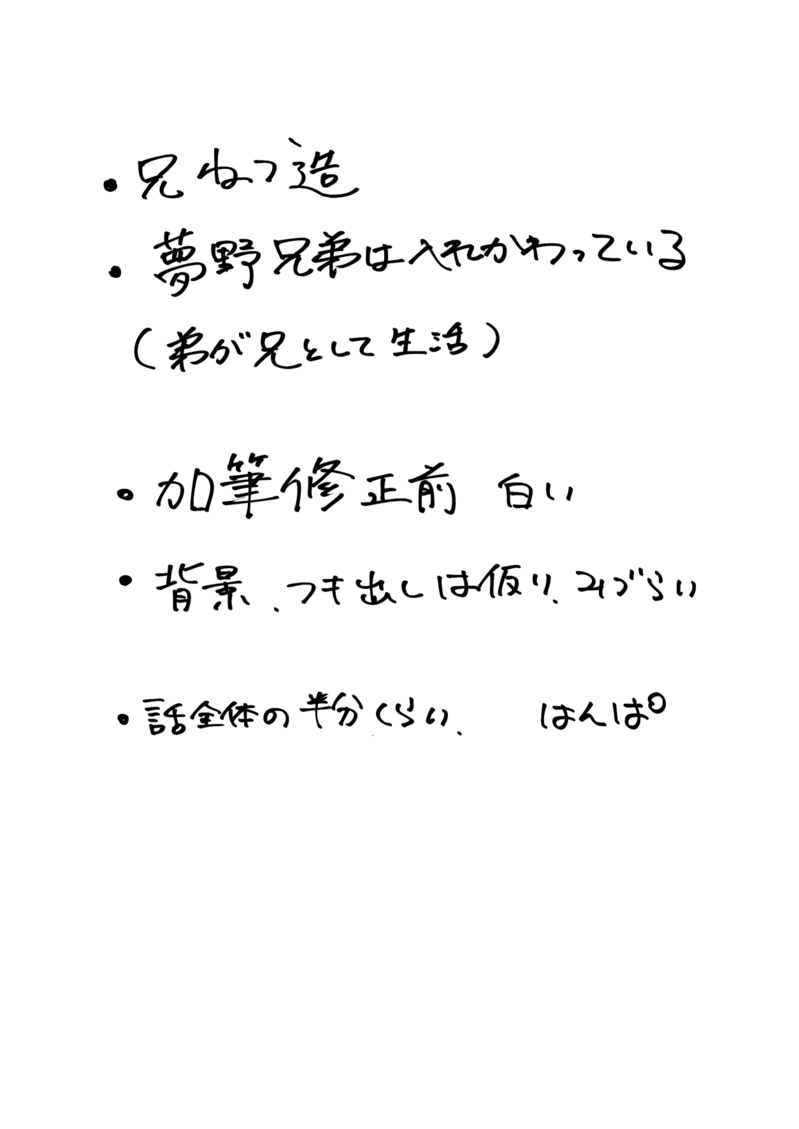 ・兄ねつ造
・夢野兄弟は入れかわっている
（弟が兄として生活）
・加筆修正前 白い
・背景、つき出しは仮り、みづらい
・話全体の半分くらい、 はんぱ